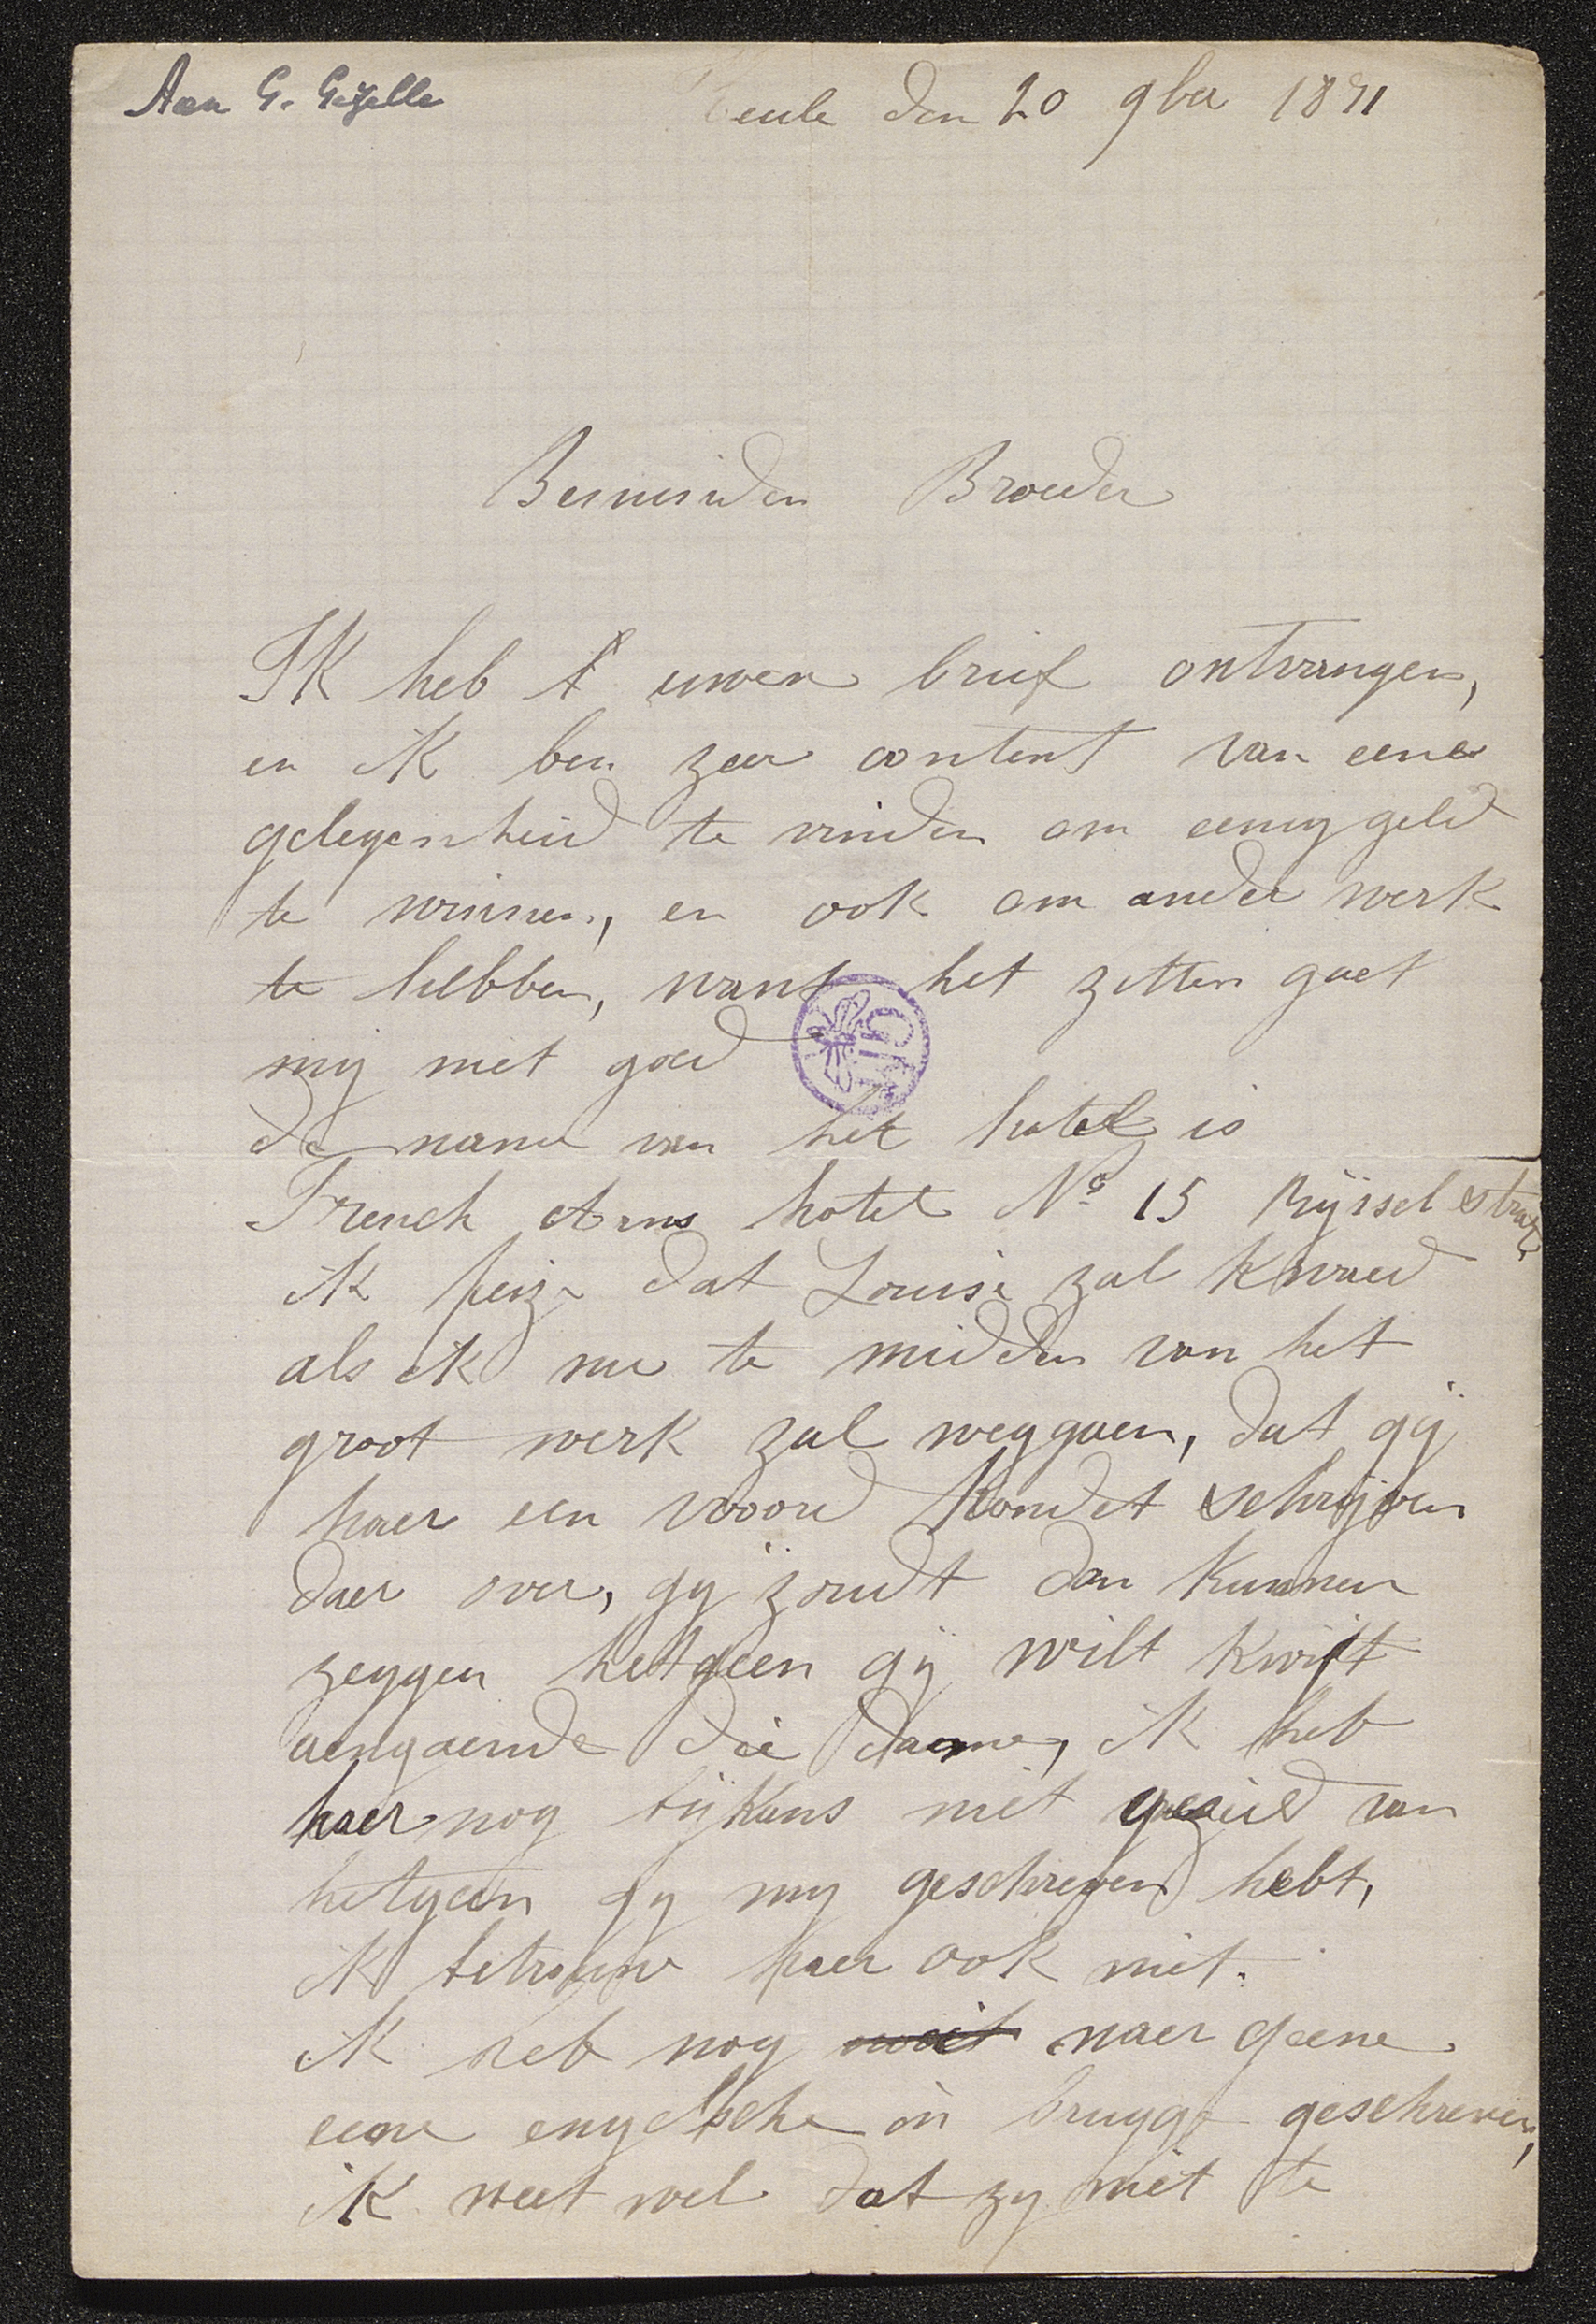 Aan G. Gezelle
Heule den 20 9ber 1891
Beminden Broeder
Ik heb uwen brief ontvangen,
en ik ben zeer content van eene
gelegenheid te vinden om eenig geld
te winnen, en ook om ander werk
te hebben, want het zitten gaet
mij niet goed
de name van het hotel is
French Arms hotel No 15 Ryssel straet
ik peize dat Louise zal kwaed
als ik nu te midden van het
groot werk zal weggaen, dat gij
haer een woord kondet schrijven
daer over, gij zoudt dan kunnen
zeggen hetgeen gij wilt kwijt
aengaende die dame, ik heb
haer nog tijkans niet gezeid van
hetgeen gy my geschreven hebt,
ik betrouw haer ook niet.
ik heb nog naer geene
eene engelsche in brugge geschreven,
ik weet wel dat zy niet te